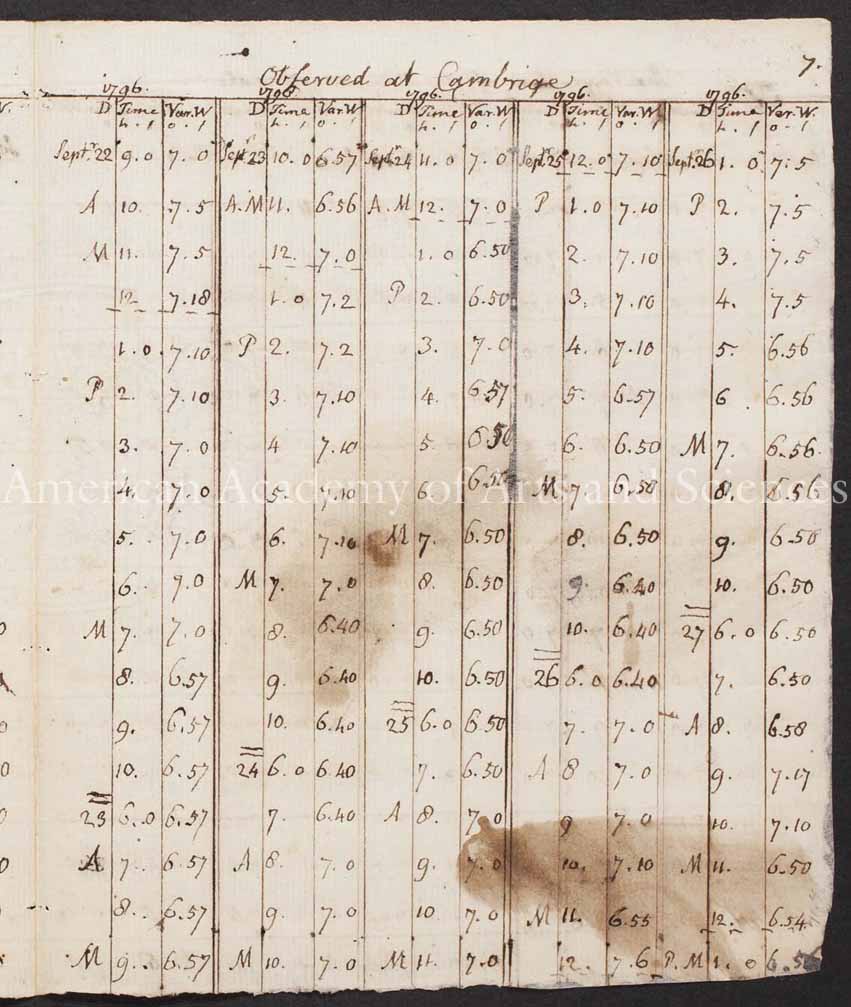 7.
Observed at Cambrige
1796. 1796. 1796. 1796. 1796.
D Time Var.W D Time Var.W D Time Var.W D Time Var.W D Time Var.W.
h. ' o. ' h. ' o. ' h. ' o. ' h. ' o. ' h. ' o. '
Septr. 22 9.0 7.0 Septr 23 10.0 6.57 Septr 24 11.0 7.0 Septr. 25 12.0 7.10 Septr. 26 1.0 7.5
A 10. 7.5 A.M 11. 6.56 A.M 12. 7.0 P 1.0 7.10 P 2. 7.5
M 11. 7.5 12. 7.0 1.0 6.50 2. 7.10 3. 7.5
12. 7.18 1.0 7.2 P 2. 6.50 3. 7.10 4. 7.5
1.0. 7.10 P 2. 7.2 3. 7.0 4. 7.10 5. 6.56
P 2. 7.10 3. 7.10 4. 6.57 5. 6.57 6. 6.56
3. 7.0 4 7.10 5. 6.50 6. 6.50 M 7. 6.56.
American Academy of Arts and Sciences
4. 7.0 5. 7.10 6. 6.50 M 7 6.50 8. 6.56
5. 7.0 6. 7.10 M 7. 6.50 8. 6.50 9. 6.50
6. 7.0 M 7. 7.0 8. 6.50 9. 6.40 10. 6.50
M 7. 7.0 8. 6.40 9. 6.50 10. 6.40 27 6.0 6.50
8. 6.57 9. 6.40 10. 6.50 26 6.0 6.40 7. 6.50
9. 6.57 10. 6.40 25 6.0 6.50 7. 7.0 A 8. 6.58
10. 6.57 24 6.0 6.40 7. 6.50 A 8 7.0 9. 7.17
23 6.0 6.57 7. 6.40 A 8. 7.0 9 7.0 10. 7.10
A 7. 6.57 A 8. 7.0 9. 7.0 10. 7.10 M 11. 6.50
8. 6.57 9. 7.0 10. 7.0 M 11. 6.55 12. 6.54
M 9. 6.57 M 10. 7.0 M 11. 7.0 12. 7.6 P.M 1.0